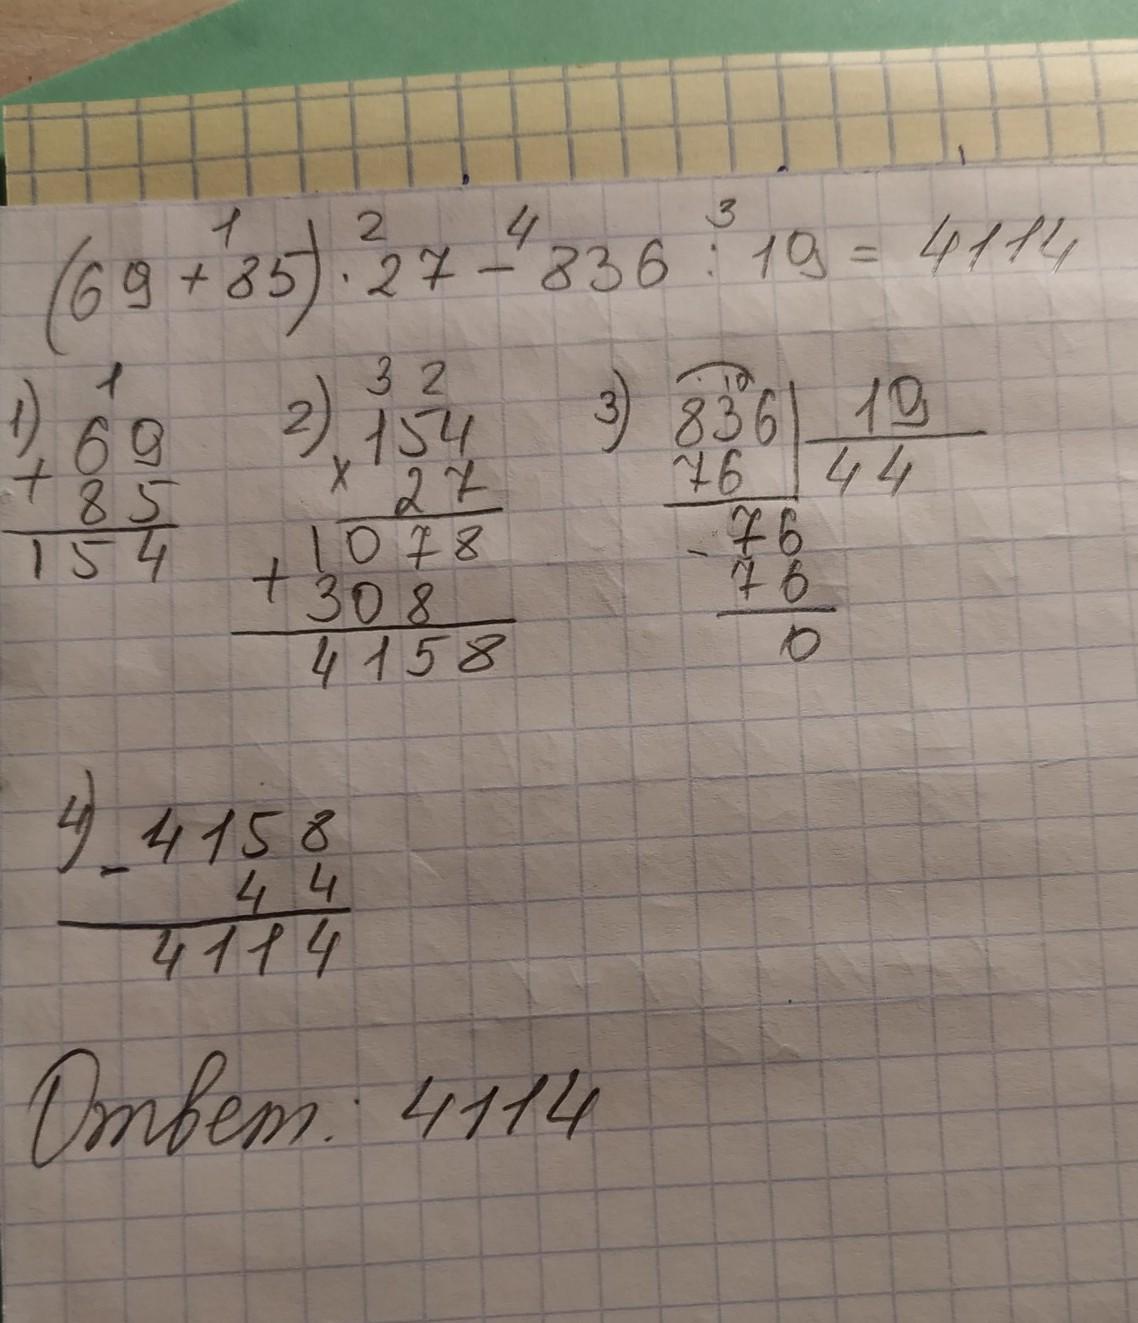 1 2 4 3
(69 + 85) · 27 - 836 : 19 = 4114
1) 1
69
+ 85
154
2) 3 2
154
× 27
1078
+ 308
4158
3) · 10
836 | 19
76 44
- 76
76
0
4) - 4158
44
4114
Ответ: 4114